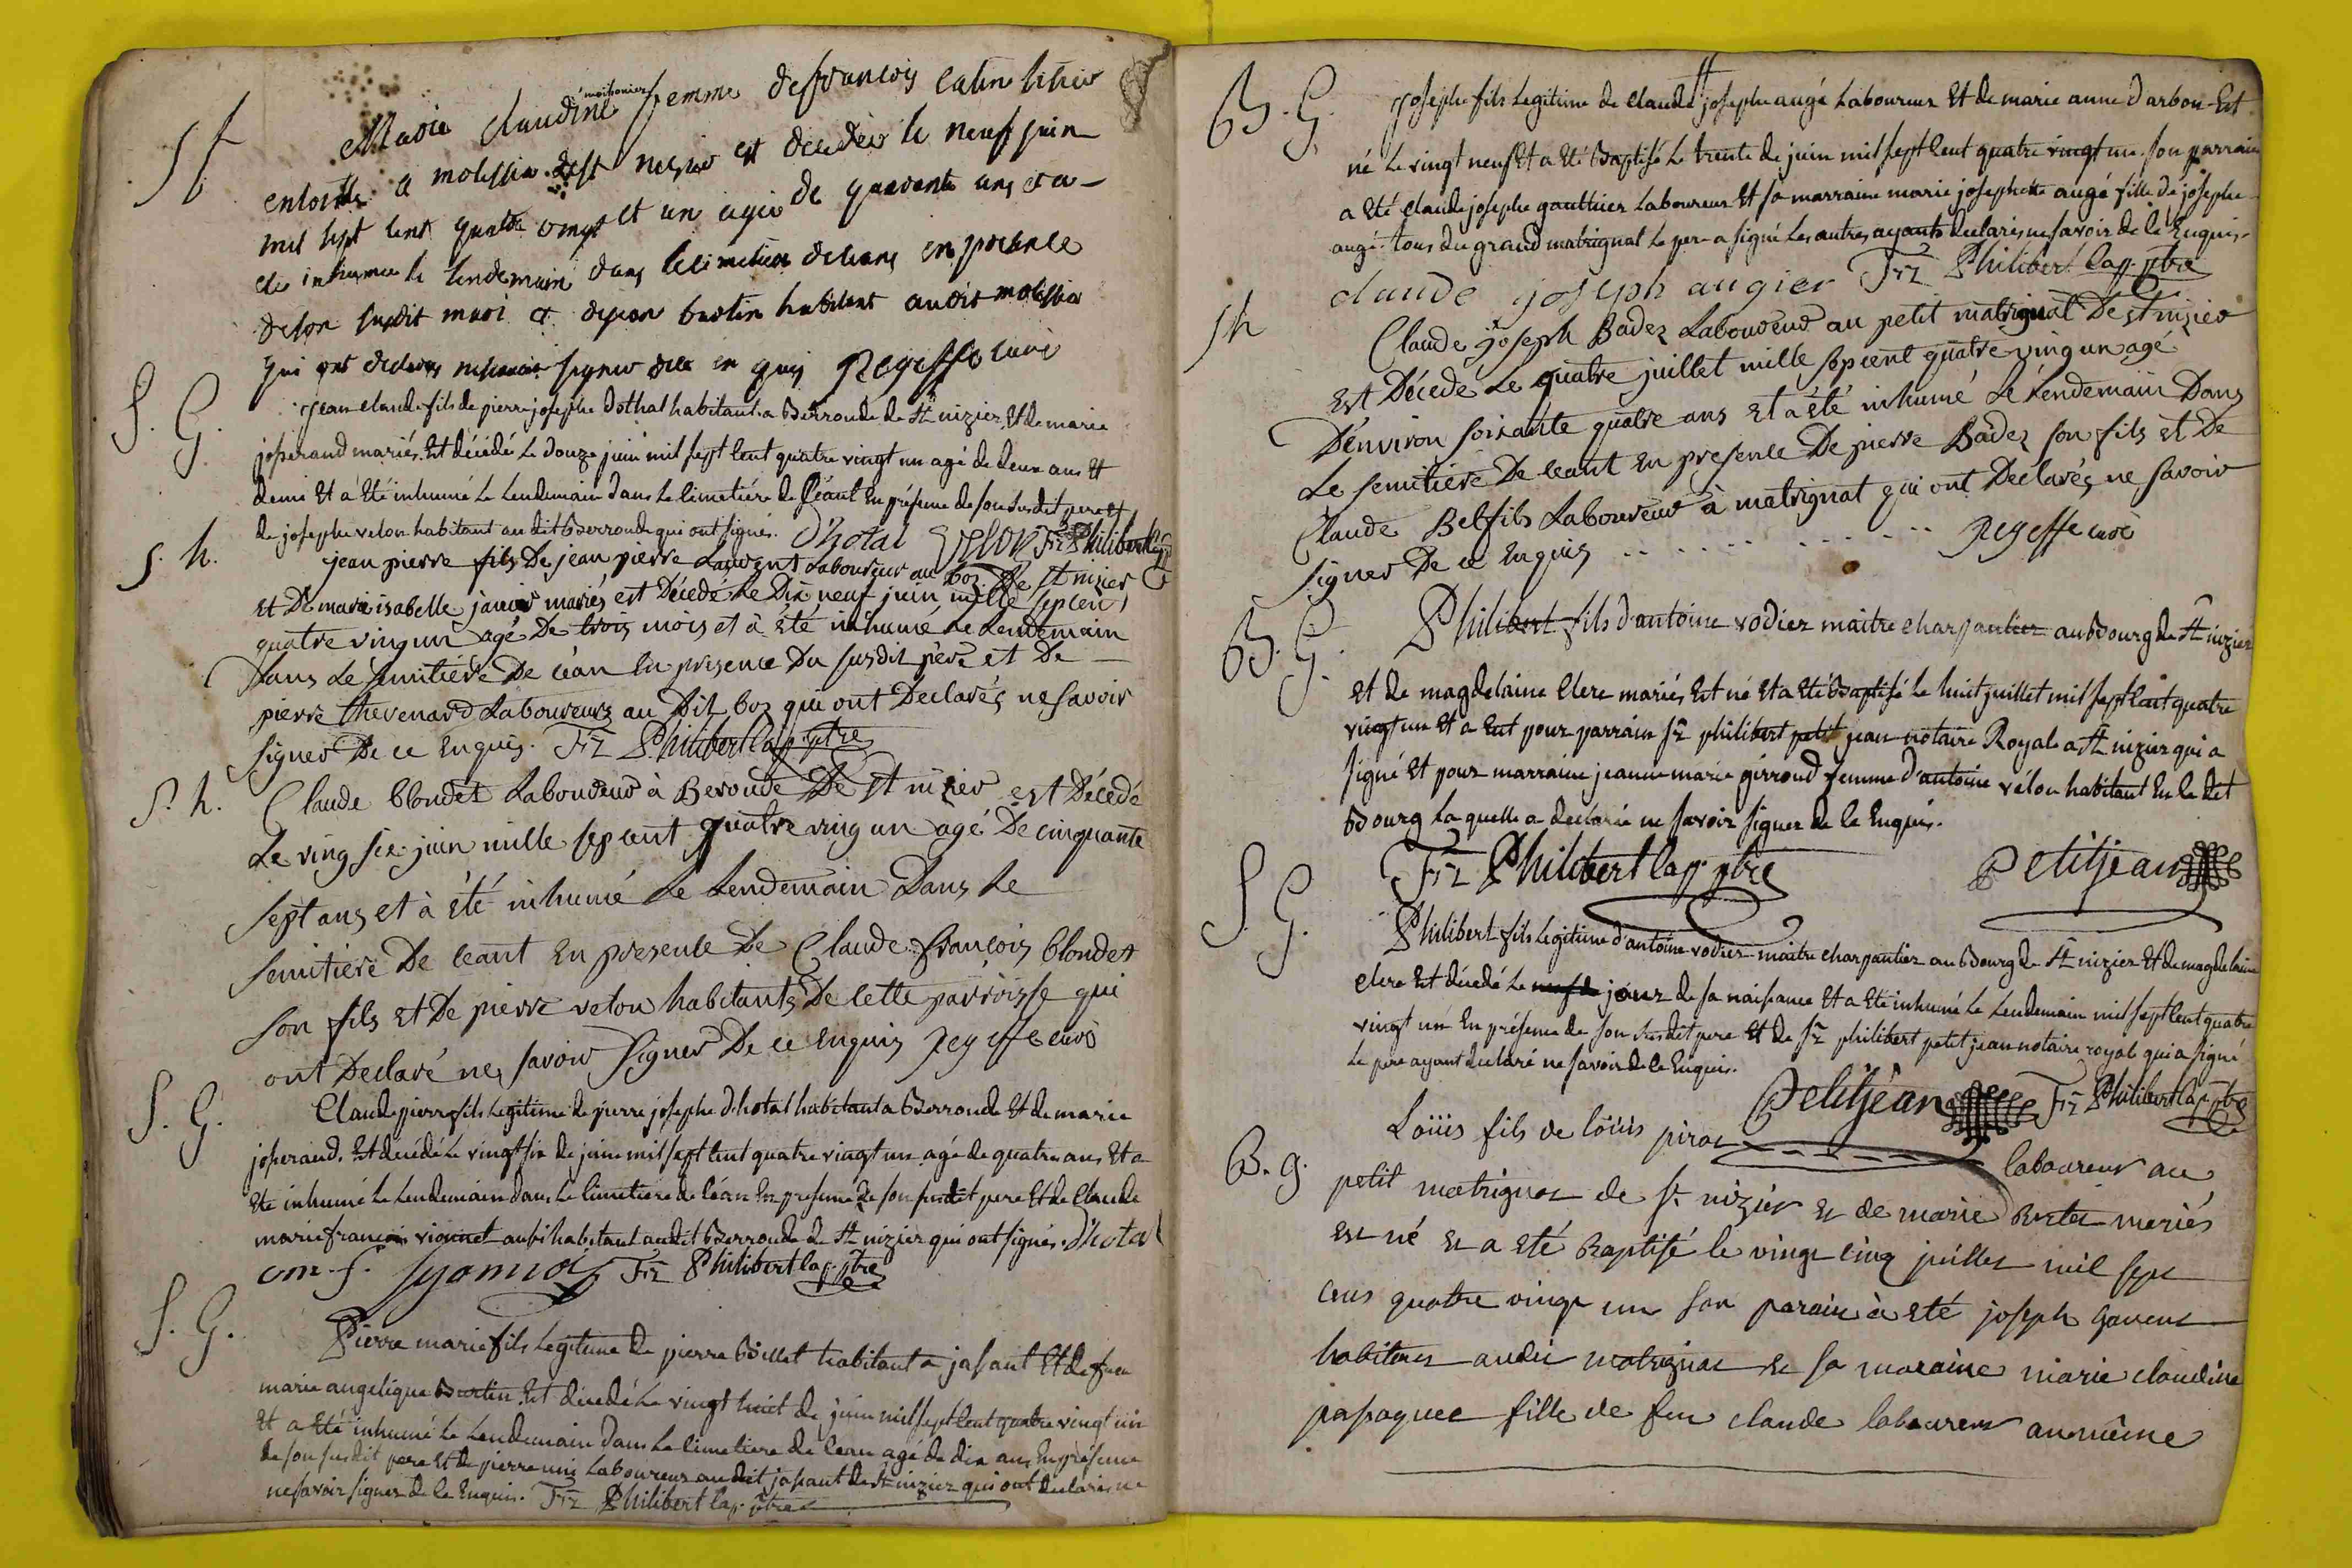 S f
Maria Claudine moissonier femme de françois catin
a molissia de st nizier est decedée le neuf juin
mil sept cent quatre vingt et un agée de quarante ans et a
été inhumée le lendemain dans le cimetiere de ceans en presence
de son susdit mari et de jean bertin habitant audit molissia
qui ont declares ne savoir signer de ce en quis Regeffe curé
S. G.
jean claude fils de pierre josephe dothal habitant a Berroude de St nizier et de marie
josserand mariés. Est décédé Le douze juin mil sept cent quatre vingt un agé de deux ans et
demi Et a Eté inhumé Le Lendemain dans Le Cimetiére de Céant En présence de son susdit pere et
de josephe velon habitant au dit Berroude qui ont signés. D'hotal Velon Frz Philibert
S. h.
jean pierre fils De jean pierre Laurent Laboureur au boz De St nizier
et De marie isabelle janier mariés est Décedé Le Dix neuf juin mille sepcent
quatre ving un agé De trois mois et à été inhumé Le Lendemain
Dans Le semitiere De céan En presence Du susdit père et De
pierre thevenard Laboureurs au Dit boz qui ont Declarés ne savoir
signer De ce Enquis. Frz Philibert Cap. ptre
S. h.
Claude blondet Laboureur à Beroude De St nizier est Décedé
Le ving six juin mille sepcent quatre ving un agé De cinquante
sept ans et à été inhumé Le Lendemain Dans Le
semitiere De ceant En presence De Claude françois blondet
son fils et De pierre velon habitants De cette parroisse qui
ont Declaré nes savoir signer De ce Enquis Regeffe curé
S. G.
Claude pierre fils Legitime de pierre josephe dhotal habitant a Berroude Et de marie
joserand. Est décédé Le vingt six de juin mil sept cent quatre vingt un agé de quatre ans Et a
Eté inhumé Le Lendemain dans Le Cimetiere de Céan En presence de son susdit pere Et de Claude
marie françois vionnet aussi habitant audit Berroude de St nizier qui ont signés. dhotal
cm. f. Frz Philibert Cap. ptre
S. G.
Pierre marie fils Legitime de pierre Billet habitant a jasant Et de feu
marie angelique Bertin. Est décedé Le vingt huit de juin mil sept cent quatre vingt un
Et a Eté inhumé Le Lendemain dans Le Cimetiere de Cean agé de dix ans En présence
de son susdit pere Et de pierre Laboureur audit jasant de St nizier qui ont declarés ne
ne savoir signer de Ce Enquis. Frz Philibert Cap. ptre
B. G.
josephe fils Legitime de Claude josephe augé Laboureur Et de marie anne Darbon. Est
né Le vingt neuf Et a Eté Baptisé Le trente de juin mil sept cent quatre vingt un. Son parrain
a Eté Claude josephe gauthier Laboureur Et sa marraine marie josephette augé fille de josephe
augé. tous du grand matrignat Le pere a signé Les autres ayants declarés ne savoir de Ce Enquis.
claude joseph augier Frz Philibert Cap. ptre
S h
Claude joseph Badez Laboureur au petit matrignat De St nizier
Est Décedé Le quatre juillet mille sepcent quatre ving un agé
D'environ soixante quatre ans Et a été inhumé Le Lendemain Dans
Le semitiere De ceant En presence De pierre Badez son fils et De
Claude Belfils Laboureur à matrignat qui ont Declarés ne savoir
signer De ce Enquis . . . . . . . . Regeffe curé
B. G.
Philibert fils d'antoine vodiez maitre charpantier au Bourg de St nizier
Et de magdelaine Clerc mariés Est né Et a Eté Baptisé Le huit juillet mil sept cent quatre
vingt un Et a Eut pour parrain Sr philibert petit jean notaire Royale a St nizier qui a
signé Et pour marraine jeanne marie girroud femme d'antoine vélon habitant En Le dit
Bourg La quelle a declarée ne savoir signer de Ce Enquis.
Frz Philibert Cap. ptre Petitjean
S. G.
Philibert fils Legitime d'antoine vodiez maitre charpantier au Bourg de St nizier Et de magdelaine
Clerc Est décedé Le jour de sa naissance Et a Eté inhumé Le Lendemain mil sept cent quatre
vingt un En présence de son susdit pere Et de Sr philibert petit jean notaire royal qui a signé
Le pere ayant declaré ne savoir de Ce Enquis.
Petitjean Frz Philibert Cap. ptre
B. g.
Loüis fils de loüis piroz laboureur au
petit matrignat de St nizier et de marie mariés
est né et a eté Baptisé le vingt cinq juillet mil sept
cens quatre vingt un son parain à eté joseph
habitant audit matrignat et sa maraine marie claudine
paquee fille de feu claude laboureur au même